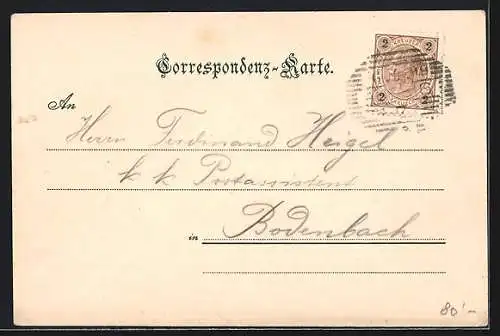 Correspondenz-Karte.
2 2
2 2
An
Herrn Ferdinand Heigel
k k Postassistent
in Bodenbach
80'-